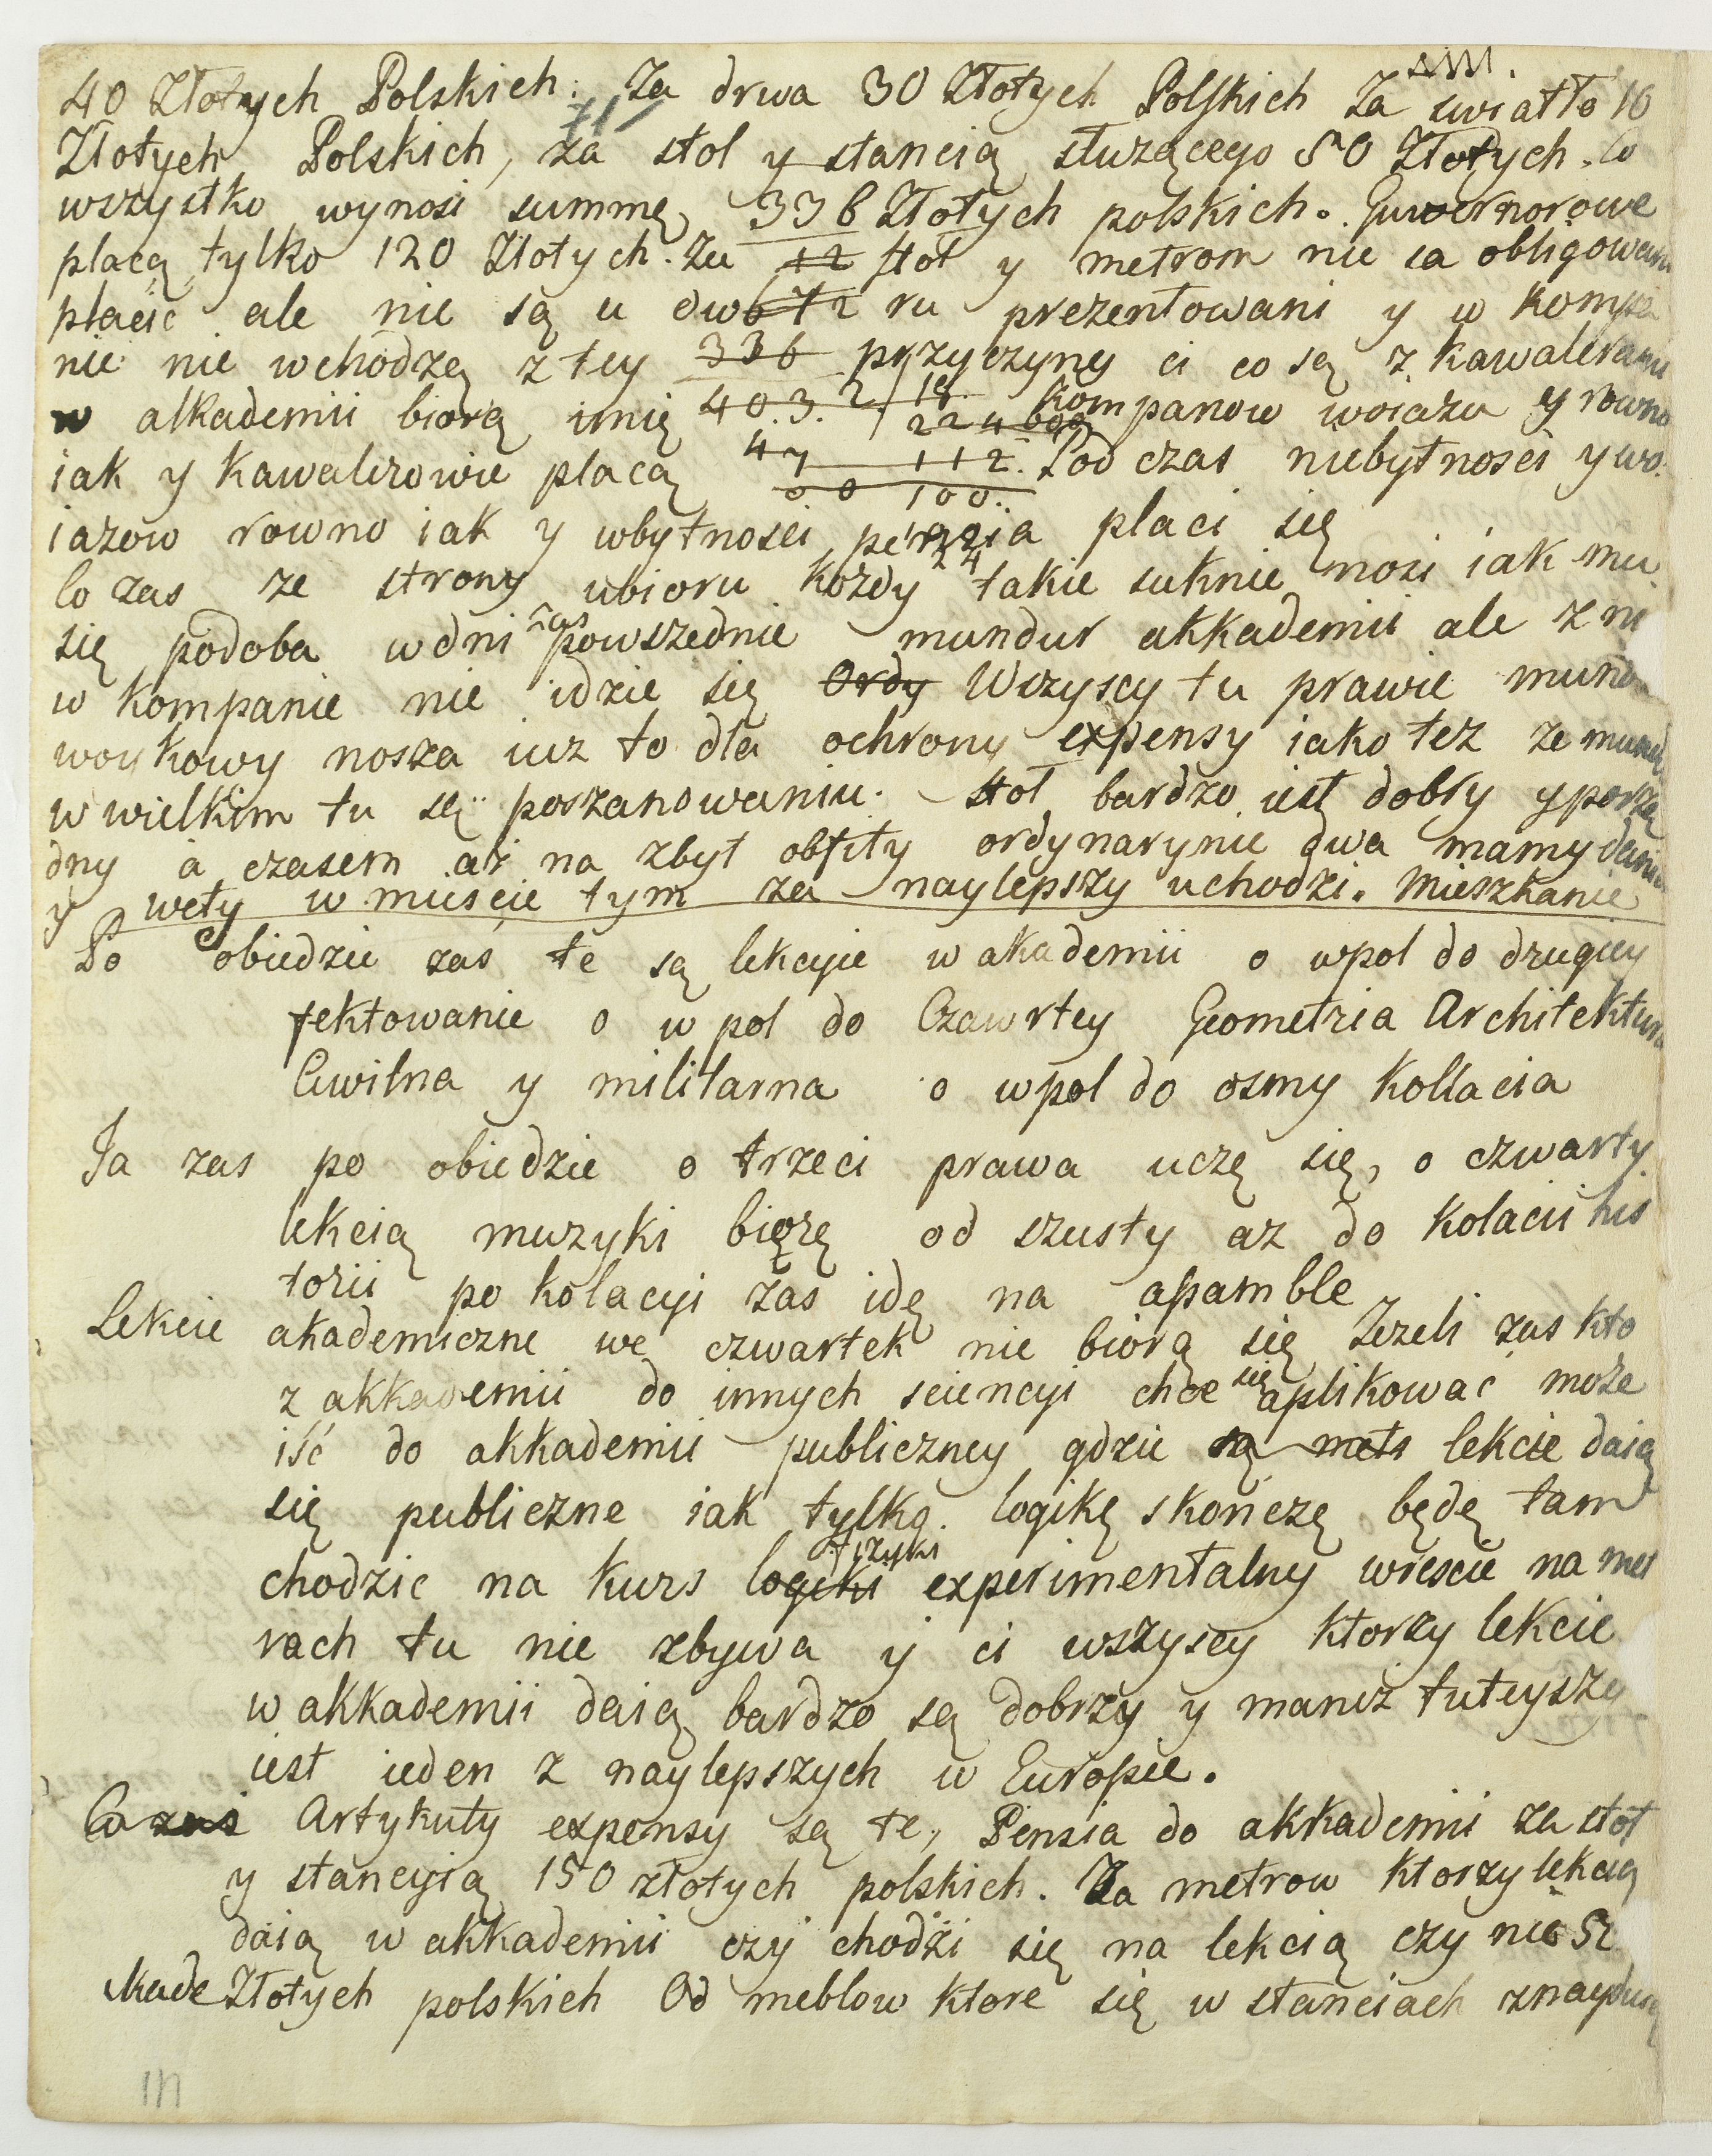 40 Złotych Polskich. Za drwa 30 Złotych Polskich Za swiatło 10
Złotych Polskich, za stol y stancią służącego 50 Złotych. Co
wszystko wynosi summę 336 Złotych polskich. Guwernorowe
placą tylko 120 Zlotych. Za 12 stoł y metrom nie sa obligowani
płacić ale nie są u dwo 72 ru prezentowani y w Kompa
nie nie wchodzą z tey 336 przyczyny ci co są z Kawalerami
w akademii biorą imię 40.3.2. 18. Kompanow woiażu y rowno
224
iak y Kawalerowie placą 47 112. Pod czas niebytnosci y wo
00 100.
iazow rowno iak y wbytnosci pensia placi się
24
Co zas ze strony ubioru kozdy takie suknie nosi iak mu
się podoba wdni zas powszednie mundur akkademii ale z ni
w kompanie nie idzie się Ordy Wszyscy tu prawie mund
woyskowy nosza iuz to dla ochrony expensy iako tez ze mund
w wielkim tu są poszanowaniu. Stoł bardzo iest dobry y porzą
dny a czasem aż na zbyt obfity ordynarynie dwa mamy dania
y wety w miescie tym za naylepszy uchodzi. Mieszkanie
Po obiedzie zas te są lekcyie w akademii o wpol do drugiey
fektowanie o w pol do Czawrtey Geometria Architektura
Ciwilna y militarna o wpol do osmy Kollacia
Ja zas po obiedzie o trzeci prawa uczę się, o czwarty
lekcią muzyki biorę od szusty az do Kolacii his
torii po kolacyi zas idę na assamble
Lekcie akademiczne we czwartek nie biorą się Jezeli zas kto
z akkademii do innych sciencyi chce się aplikować może
iść do akkademii publiczney gdzie są mets lekcie daią
się publiczne iak tylko logikę skończę będę tam
fizyki
chodzic na kurs logiki experimentalny wrescie na met
rach tu nie zbywa y ci wszyscy ktorzy lekcie
w akkademii daią bardzo są dobrzy y maniż tuteyszy
iest ieden z naylepszych w Europie.
Co zas Artykuły expensy są te, Pensia do akkademii za stoł
y stancyią 150 złotych polskich. Za metrow ktorzy lekcią
daią w akkademii czy chodzi się na lekcią czy nie 52
Złotych polskich Od meblow ktore się w stanciach znayduią